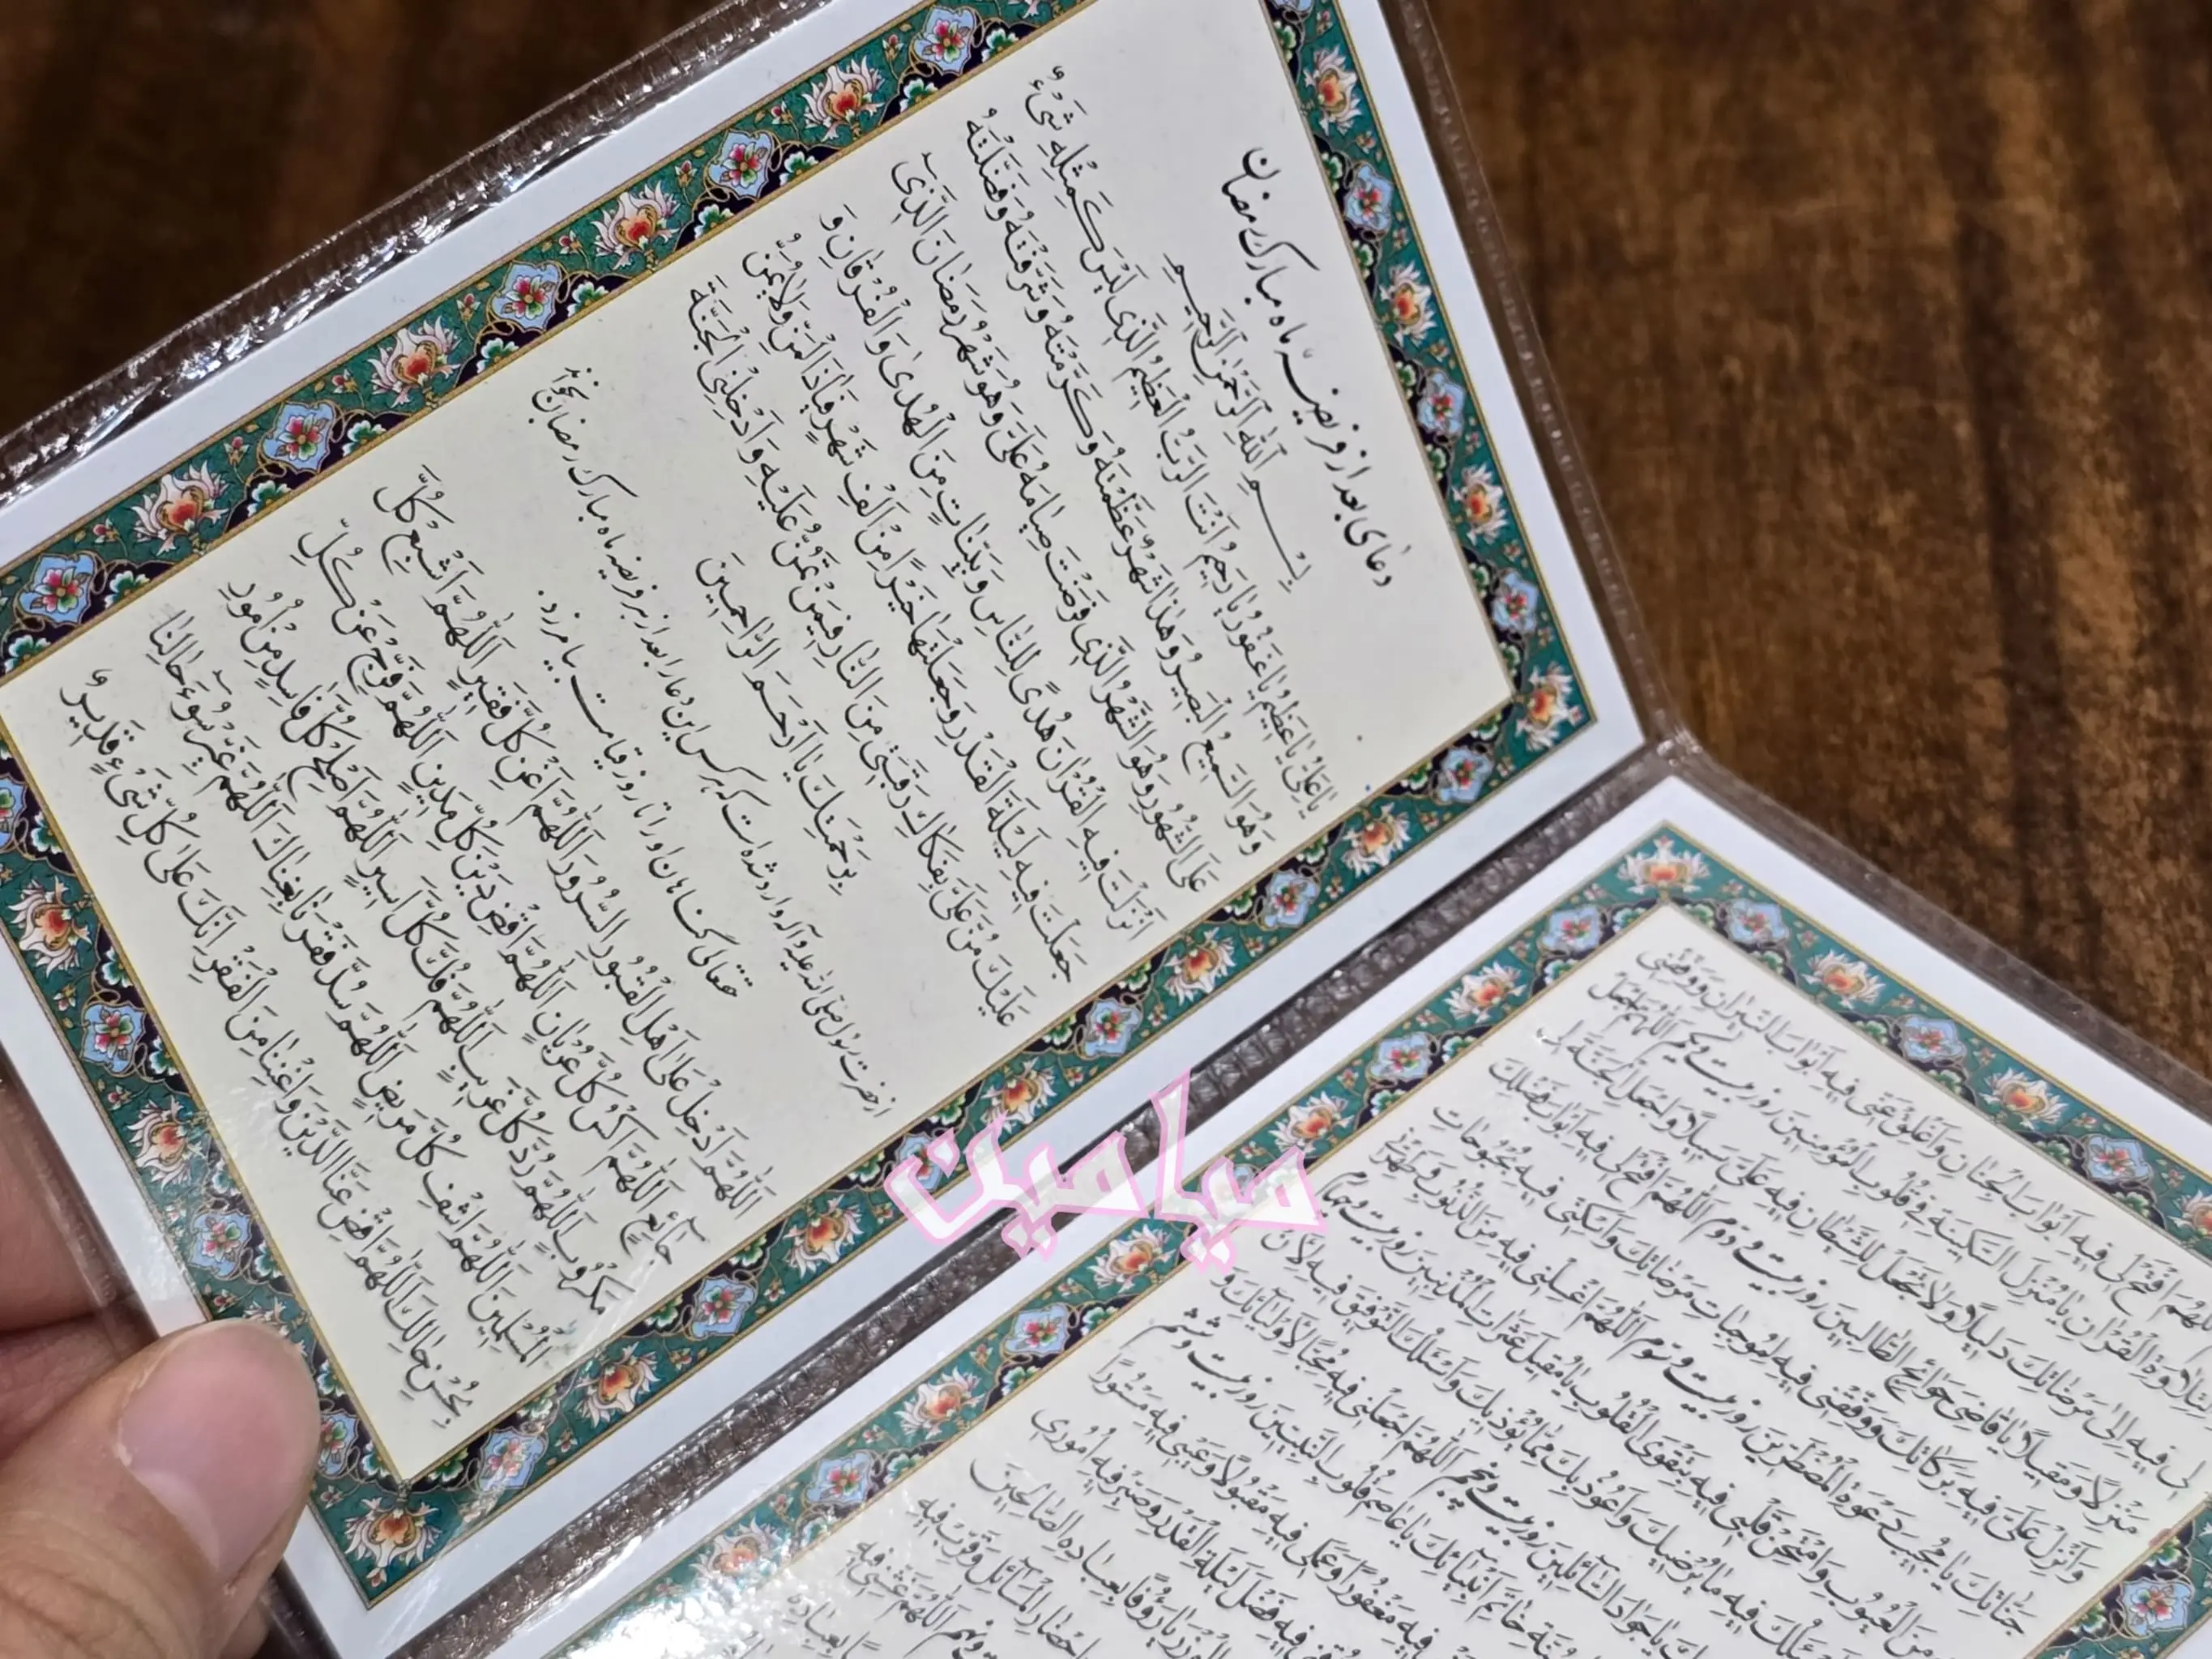 دعای بعد از فریضه ماه مبارک رمضان
بِسْمِ اللهِ الرَّحْمٰنِ الرَّحِیمِ
یٰا عَلِیُّ یٰا عَظِیمُ یٰا غَفُورُ یٰا رَحِیمُ اَنْتَ الرَّبُّ الْعَظِیمُ الَّذِی لَیْسَ کَمِثْلِهِ شَیْءٌ
وَ هُوَ السَّمِیعُ الْبَصِیرُ وَ هٰذٰا شَهْرٌ عَظَّمْتَهُ وَ کَرَّمْتَهُ وَ شَرَّفْتَهُ وَ فَضَّلْتَهُ
عَلَی الشُّهُورِ وَ هُوَ الشَّهْرُ الَّذِی فَرَضْتَ صِیٰامَهُ عَلَیَّ وَ هُوَ شَهْرُ رَمَضٰانَ الَّذِی
اَنْزَلْتَ فِیهِ الْقُرْاٰنَ هُدًی لِلنّٰاسِ وَ بَیِّنٰاتٍ مِنَ الْهُدیٰ وَ الْفُرْقٰانِ وَ
جَعَلْتَ فِیهِ لَیْلَةَ الْقَدْرِ وَ جَعَلْتَهٰا خَیْرًا مِنْ اَلْفِ شَهْرٍ فَیٰا ذَا الْمَنِّ وَ لٰا یُمَنُّ
عَلَیْكَ مُنَّ عَلَیَّ بِفَکٰاكِ رَقَبَتِی مِنَ النّٰارِ فِیمَنْ تَمُنُّ عَلَیْهِ وَ اَدْخِلْنِی الْجَنَّةَ
بِرَحْمَتِكَ یٰا اَرْحَمَ الرّٰاحِمِینَ
از حضرت رسول صلی الله علیه و آله وارد شده است که هر کس این دعا را بعد از هر فریضه ماه مبارک رمضان بخواند
حقتعالی گناهان او را تا روز قیامت بیامرزد.
اَللّٰهُمَّ اَدْخِلْ عَلیٰ اَهْلِ الْقُبُورِ السُّرُورَ اَللّٰهُمَّ اَغْنِ کُلَّ فَقِیرٍ اَللّٰهُمَّ اَشْبِعْ کُلَّ
جٰائِعٍ اَللّٰهُمَّ اکْسُ کُلَّ عُرْیٰانٍ اَللّٰهُمَّ اقْضِ دَیْنَ کُلِّ مَدِینٍ اَللّٰهُمَّ فَرِّجْ عَنْ کُلِّ
مَکْرُوبٍ اَللّٰهُمَّ رُدَّ کُلَّ غَرِیبٍ اَللّٰهُمَّ فُكَّ کُلَّ اَسِیرٍ اَللّٰهُمَّ اَصْلِحْ کُلَّ فٰاسِدٍ مِنْ اُمُورِ
الْمُسْلِمِینَ اَللّٰهُمَّ اشْفِ کُلَّ مَرِیضٍ اَللّٰهُمَّ سُدَّ فَقْرَنٰا بِغِنٰاكَ اَللّٰهُمَّ غَیِّرْ سُوءَ حٰالِنٰا
بِحُسْنِ حٰالِكَ اَللّٰهُمَّ اقْضِ عَنَّا الدَّیْنَ وَ اَغْنِنٰا مِنَ الْفَقْرِ اِنَّكَ عَلیٰ کُلِّ شَیْءٍ قَدِیرٌ
میامین
اللهم افْتَحْ لِی فِیهِ اَبْوٰابَ الْجِنٰانِ وَ اَغْلِقْ عَنِّی فِیهِ اَبْوٰابَ النِّیرٰانِ وَ وَفِّقْنِی
لِتِلٰاوَةِ الْقُرْاٰنِ یٰا مُنْزِلَ السَّکِینَةِ فِی قُلُوبِ الْمُؤْمِنِینَ روز بیست و یکم اَللّٰهُمَّ اجْعَلْ
لِی فِیهِ اِلیٰ مَرْضٰاتِكَ دَلِیلًا وَ لٰا تَجْعَلْ لِلشَّیْطٰانِ فِیهِ عَلَیَّ سَبِیلًا وَ اجْعَلِ الْجَنَّةَ لِی
مَنْزِلًا وَ مَقِیلًا یٰا قٰاضِیَ حَوٰائِجِ الطّٰالِبِینَ روز بیست و دوم اَللّٰهُمَّ افْتَحْ لِی فِیهِ اَبْوٰابَ فَضْلِكَ
وَ اَنْزِلْ عَلَیَّ فِیهِ بَرَکٰاتِكَ وَ وَفِّقْنِی فِیهِ لِمُوجِبٰاتِ مَرْضٰاتِكَ وَ اَسْکِنِّی فِیهِ بُحْبُوحٰاتِ
جَنّٰاتِكَ یٰا مُجِیبَ دَعْوَةِ الْمُضْطَرِّینَ روز بیست و سوم اَللّٰهُمَّ اغْسِلْنِی فِیهِ مِنَ الذُّنُوبِ وَ طَهِّرْنِی
مِنَ الْعُیُوبِ وَ امْتَحِنْ قَلْبِی فِیهِ بِتَقْوَی الْقُلُوبِ یٰا مُقِیلَ عَثَرٰاتِ الْمُذْنِبِینَ روز بیست و چهارم
فِیهِ مٰا یُرْضِیكَ وَ اَعُوذُ بِكَ مِمّٰا یُؤْذِیكَ وَ اَسْئَلُكَ التَّوْفِیقَ فِیهِ لِاَنْ
یٰا جَوٰادَ السّٰائِلِینَ روز بیست و پنجم اَللّٰهُمَّ اجْعَلْنِی فِیهِ مُحِبًّا لِاَوْلِیٰائِكَ وَ
خٰاتَمِ اَنْبِیٰائِكَ یٰا عٰاصِمَ قُلُوبِ النَّبِیِّینَ روز بیست و ششم
فِیهِ مَغْفُورًا وَ عَمَلِی فِیهِ مَقْبُولًا وَ عَیْبِی فِیهِ مَسْتُورًا
فِیهِ فَضْلَ لَیْلَةِ الْقَدْرِ وَ صَیِّرْ فِیهِ اُمُورِی
یٰا رَؤُفًا بِعِبٰادِهِ الصّٰالِحِینَ
الْمَسٰائِلِ وَ قَرِّبْ فِیهِ
اَللّٰهُمَّ غَشِّنِی فِیهِ
بِعِبٰادِهِ